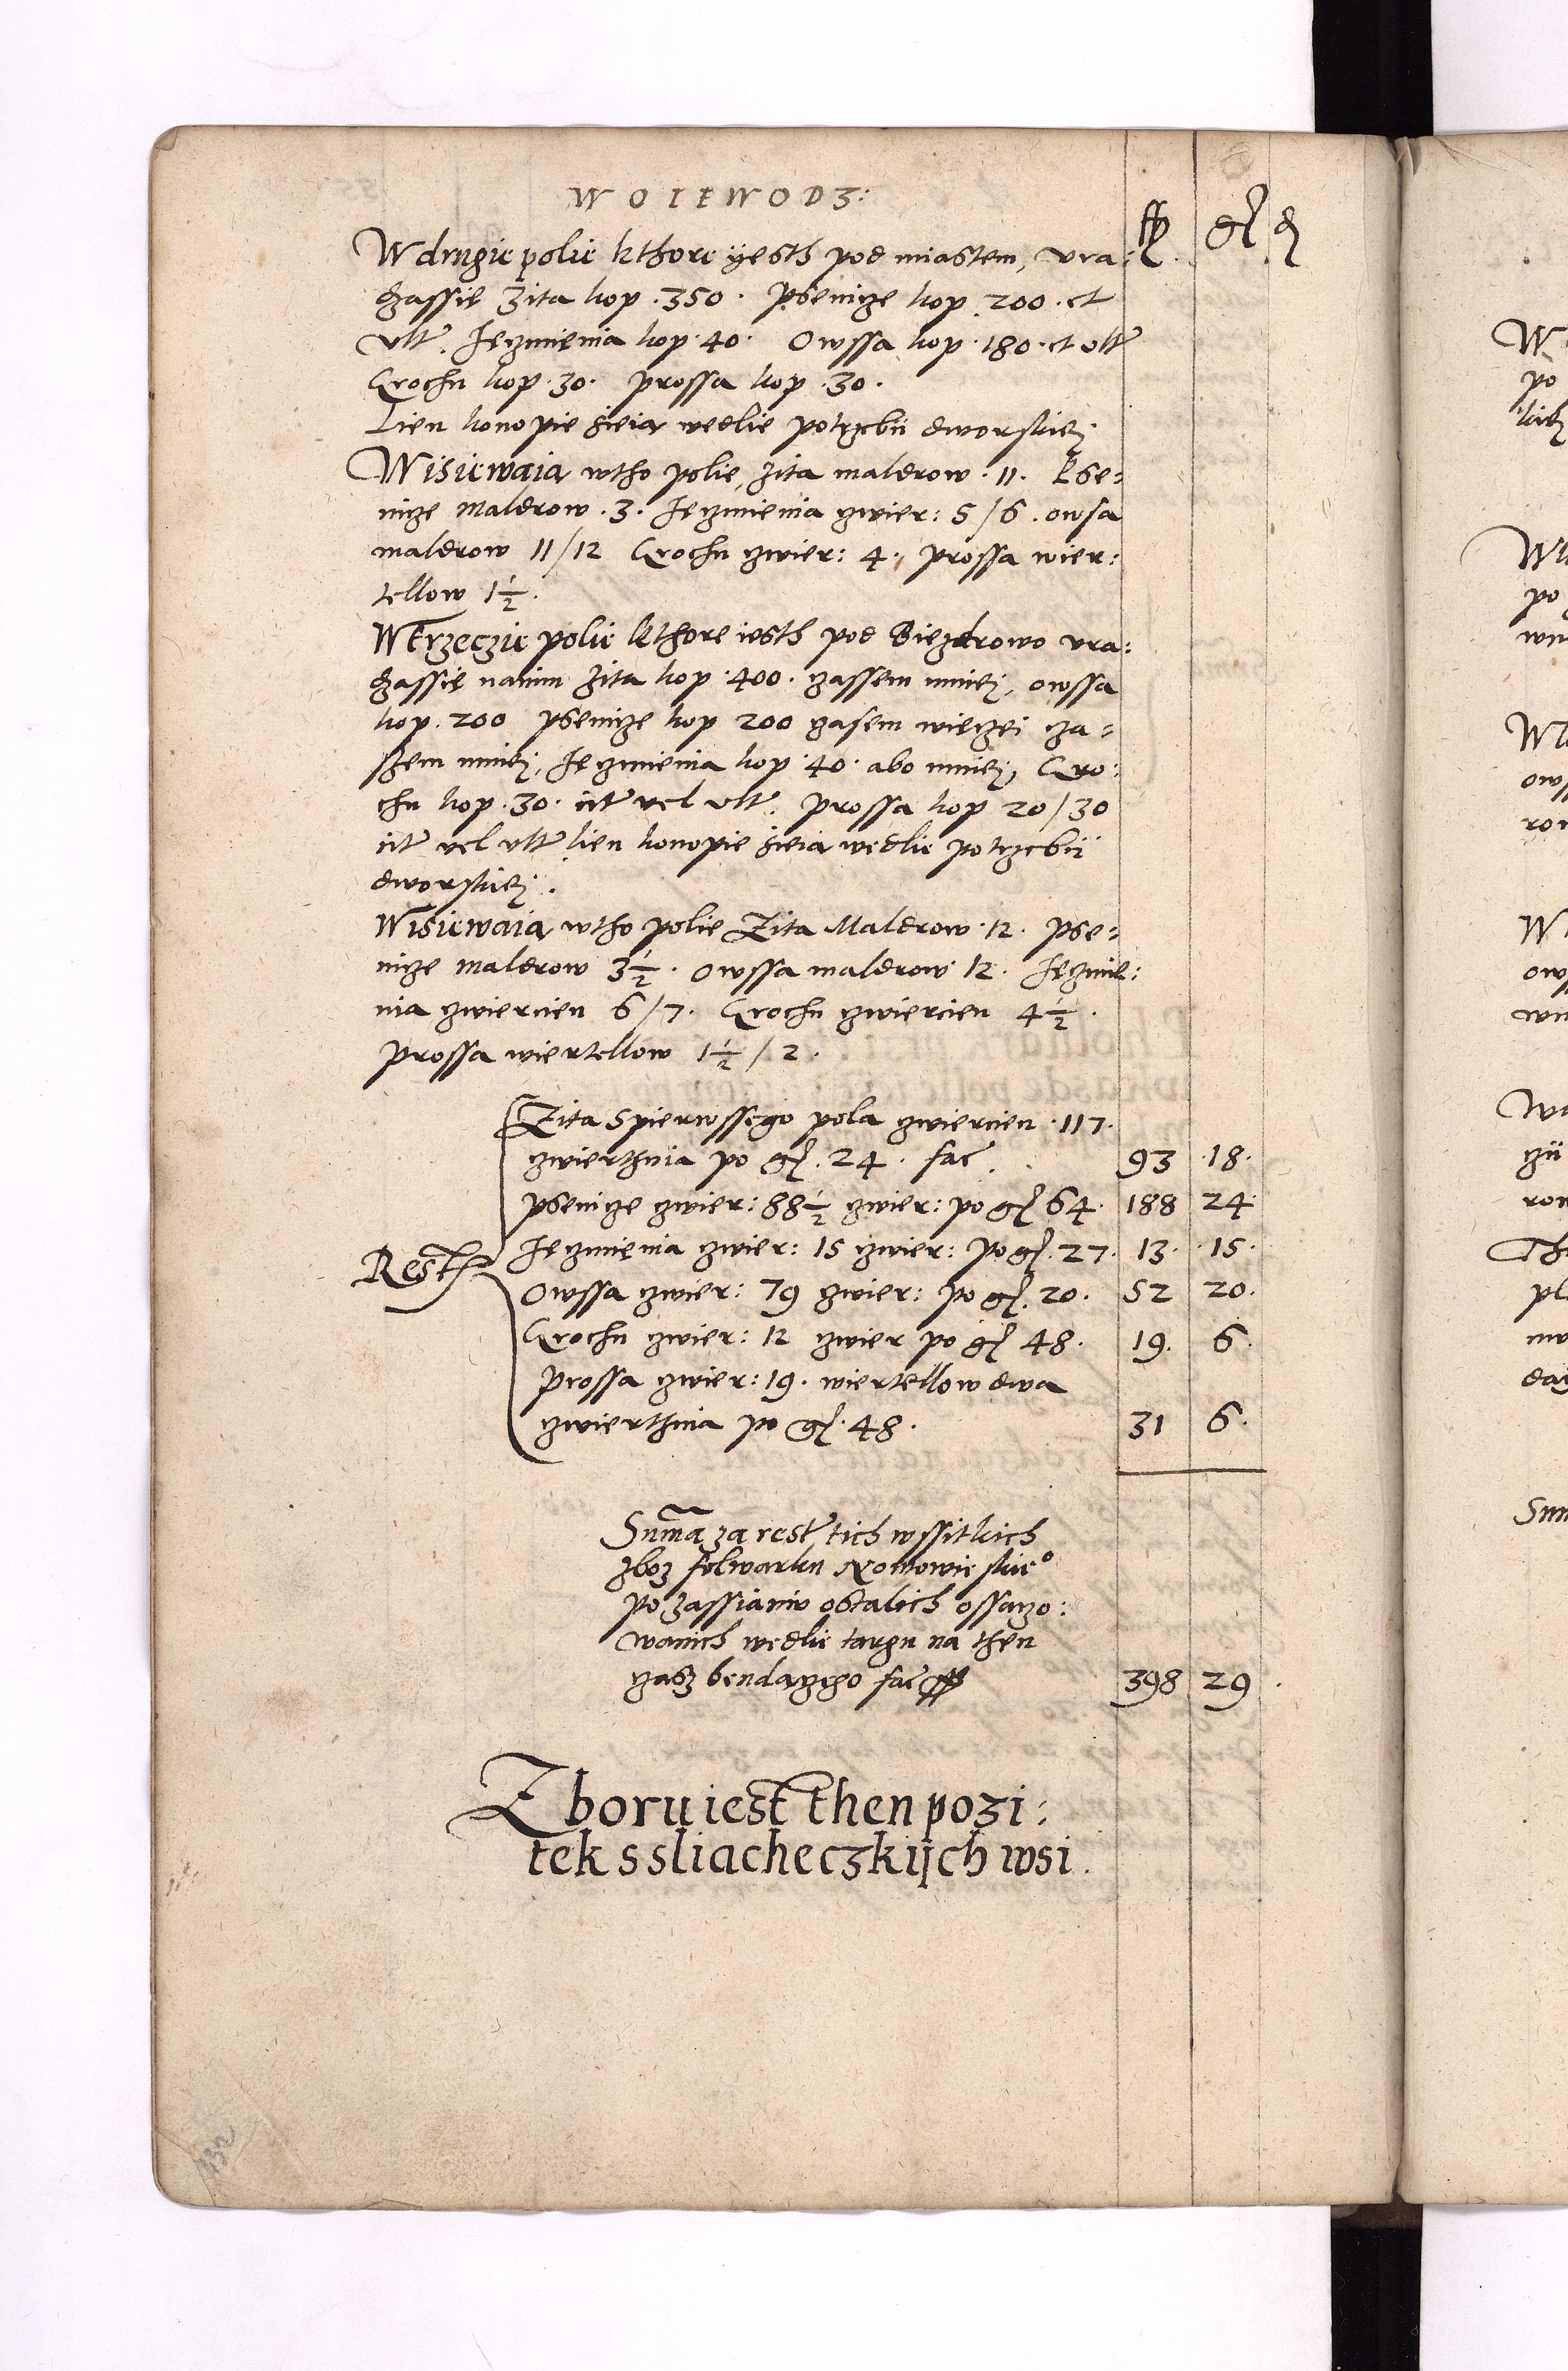 WOIEWODZ:
fl gr d
W drugie polie kthore yesth pod miastem, vra:
dzassię Zita kop . 350 . psenicze kop . 200 . et
vltr . Jęczmięnia kop . 40 . Owssa kop . 180 . et vltr
Grochu kop . 30 . prossa kop . 30 .
Lien konopie sieią wedlie potrzebii dworskiej
Wisiewaią wtho polie, żita maldrow . 11 . Pse:
nicze maldrow . 3 . Jęczmienia czwier: 5/6 . owsa
maldrow 11/12 Grochu czwier: 4 . prossa wier:
tellow 1½ .
W trzeczie polie kthore iesth pod Biezdrowo vra:
dzassię nanim żita kop . 400 . czassem mniej, owssa
kop . 200 psenicze kop 200 czasem więczei cza:
szem mniej, Jęczmienia kop . 40 . abo mniej, Gro:
chu kop . 30 . citr vel vltr . prossa kop 20/30
citr vel vltr lien konopie sieią wedlie potrzebii
dworskiej .
Wisiewaią wtho polie Zita Maldrow . 12 . pse:
nicze maldrow 3½ . Owssa maldrow 12 . Jęczmie:
nia czwiercien 6/7 . Grochu czwiercien 4½ .
prossa wiertellow 1½/2 .
Zita spierwssego pola czwiercien . 117 .
czwierthnia po gr . 24 . fac . 93 . 18 .
psenicze czwier: 88½ czwier: po gr 64 . 188 24 .
Resth Jęczmięnia czwier: 15 czwier: po gr . 27 . 13 . 15 .
Owssa czwier: 79 czwier: po gr . 20 . 52 20 .
Grochu czwier: 12 czwier po gr 48 . 19 . 6 .
prossa czwier: 19 . wiertellow dwa
czwierthnia po gr . 48 . 31 6 .
Summa za restr tich wssitkich
zboz folwarku Nowowieskieo
po zassianiu ostalich ossaczo:
wanich wedlie targu na then
czasz bendączego fac fl 398 29 .
Zboru iest then pozi:
tek s sliacheczkijch wsi .
132